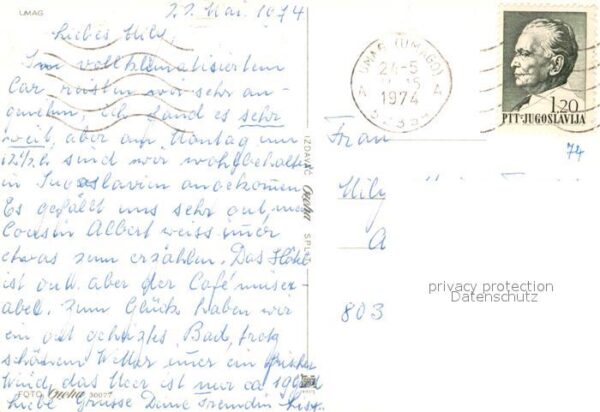 UMAG
22. Mai. 1974
Liebes Hily,
Im vollklimatisiertem
Car reisten wir sehr an-
genehm, ich fand es sehr
weit, aber am Montag um
12½h sind wir wohlbehalten
in Jugoslavien angekommen
Es gefällt uns sehr gut, mein
Cousin Albert weiss immer
etwas zum erzählen. Das Hotel
ist aber der Café miser-
abel. Zum Glück haben wir
ein gut geheiztes Bad, trotz
schönem Wetter immer ein frischer
Wind, das Meer ist nur ca 19
Liebe Grüsse Deine Freundin
FOTO
IZDAVAČ SPLIT
UMAG (UMAGO)
24-5
1974
1,20
PTT-JUGOSLAVIJA
74
Frau
Hily
A
803
privacy protection
Datenschutz